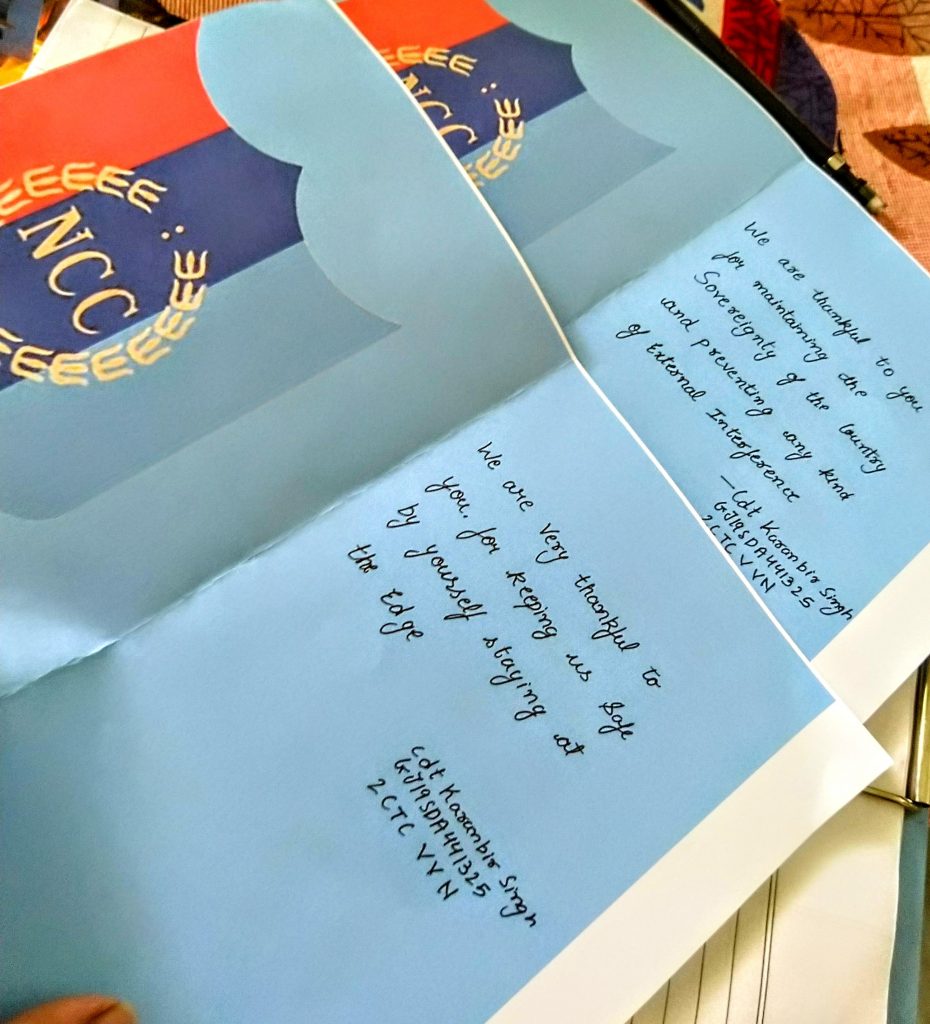 NCC
We are Very thankful to
you. for keeping us Safe
by yourself staying at
the Edge
Cdt Karanbir Singh
GJ19SDA441325
2CTC VVN
NCC
We are thankful to you
for maintaining the
Sovereignty of the Country
and preventing any kind
of External Interference
-Cdt Karanbir Singh
GJ19SDA441325
2CTC VVN